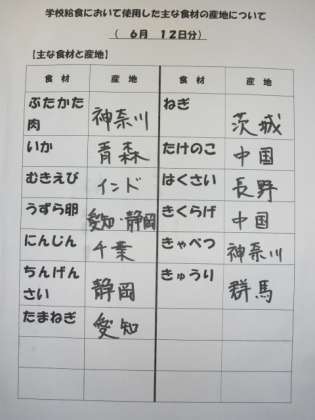 学校給食において使用した主な食材の産地について
( 6月 12日分)
【主な食材と産地】
食材 産地 食材 産地
ぶたかた肉 神奈川 ねぎ 茨城
いか 青森 たけのこ 中国
むきえび インド はくさい 長野
うずら卵 愛知・静岡 きくらげ 中国
にんじん 千葉 きゃべつ 神奈川
ちんげんさい 静岡 きゅうり 群馬
たまねぎ 愛知